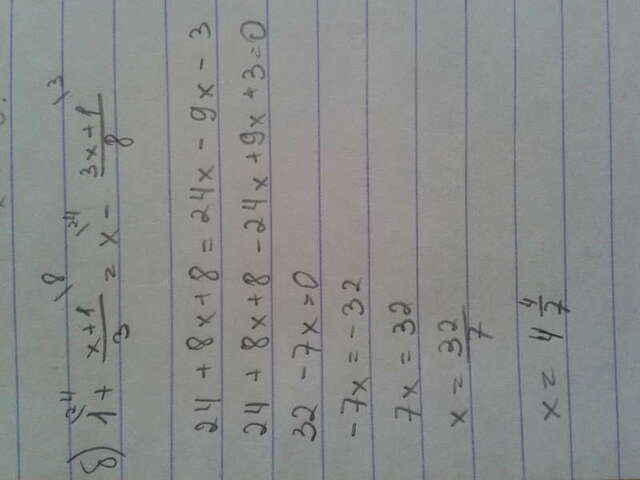 8) 1\24 + (x+1)/3 \8 = x\24 - (3x+1)/8 \3
24 + 8x + 8 = 24x - 9x - 3
24 + 8x + 8 - 24x + 9x + 3 = 0
32 - 7x = 0
-7x = -32
7x = 32
x = 32/7
x = 4 4/7